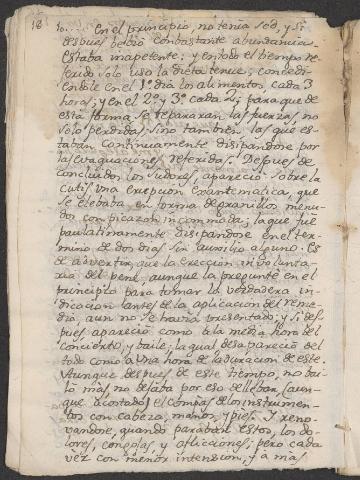 18 10.... En el principio, no tenia sed, y si
despues bebio con bastante abundancia.
Estaba inapetente: y en todo el tiempo re-
ferido solo uso la dieta tenue, concedi-
endole en el 1.º dia los alimentos cada 3
horas; y en el 2.º y 3.º cada 2; para que de
esta forma se repararan las fuerzas, no
solo perdidas, sino tambien las que es-
taban continuamente disipandose por
las evaquaciones referidas. Despues de
concluidos los sudores, aparecio sobre la
cutis una erupcion exantematica, que
se elebaba en forma de granillos menu-
dos con picazon incomoda; la que fue
paulatinamente disipandose en el ter-
mino de dos dias sin auxilio alguno. Es
de advertir, que la ereccion involunta-
ria del pene, aunque la pregunté en el
principio para tomar la verdadera in-
dicacion (antes de la aplicacion del reme-
dio, aun no se havia presentado; y si des-
pues aparecio como á la media hora del
concierto, y baile; la qual desaparecio del
todo como á una hora de la duracion de este.
Aunque despues de este tiempo, no bai-
ló mas, no dejaba por eso de llebar (aun-
que acostado) el compas de los instrumen-
tos con cabeza, manos, y pies. Y reno-
vandose, quando paraban estos, los do-
lores, congojas, y aflicciones; pero cada
vez con menor intension, y á mas